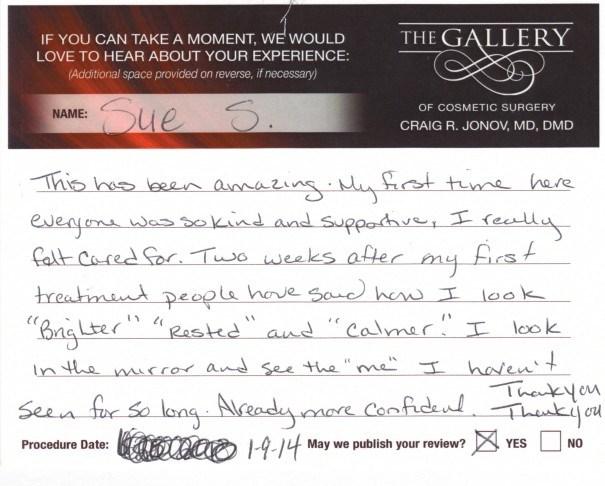 IF YOU CAN TAKE A MOMENT, WE WOULD
LOVE TO HEAR ABOUT YOUR EXPERIENCE:
(Additional space provided on reverse, if necessary)
NAME: Sue S.
THE GALLERY
OF COSMETIC SURGERY
CRAIG R. JONOV, MD, DMD
This has been amazing. My first time here
everyone was so kind and supportive, I really
felt cared for. Two weeks after my first
treatment people have said how I look
"Brighter" "Rested" and "calmer." I look
in the mirror and see the "me" I haven't
seen for so long. Already more confident. Thank you
Thank you
Procedure Date: 1-9-14 May we publish your review? YES NO